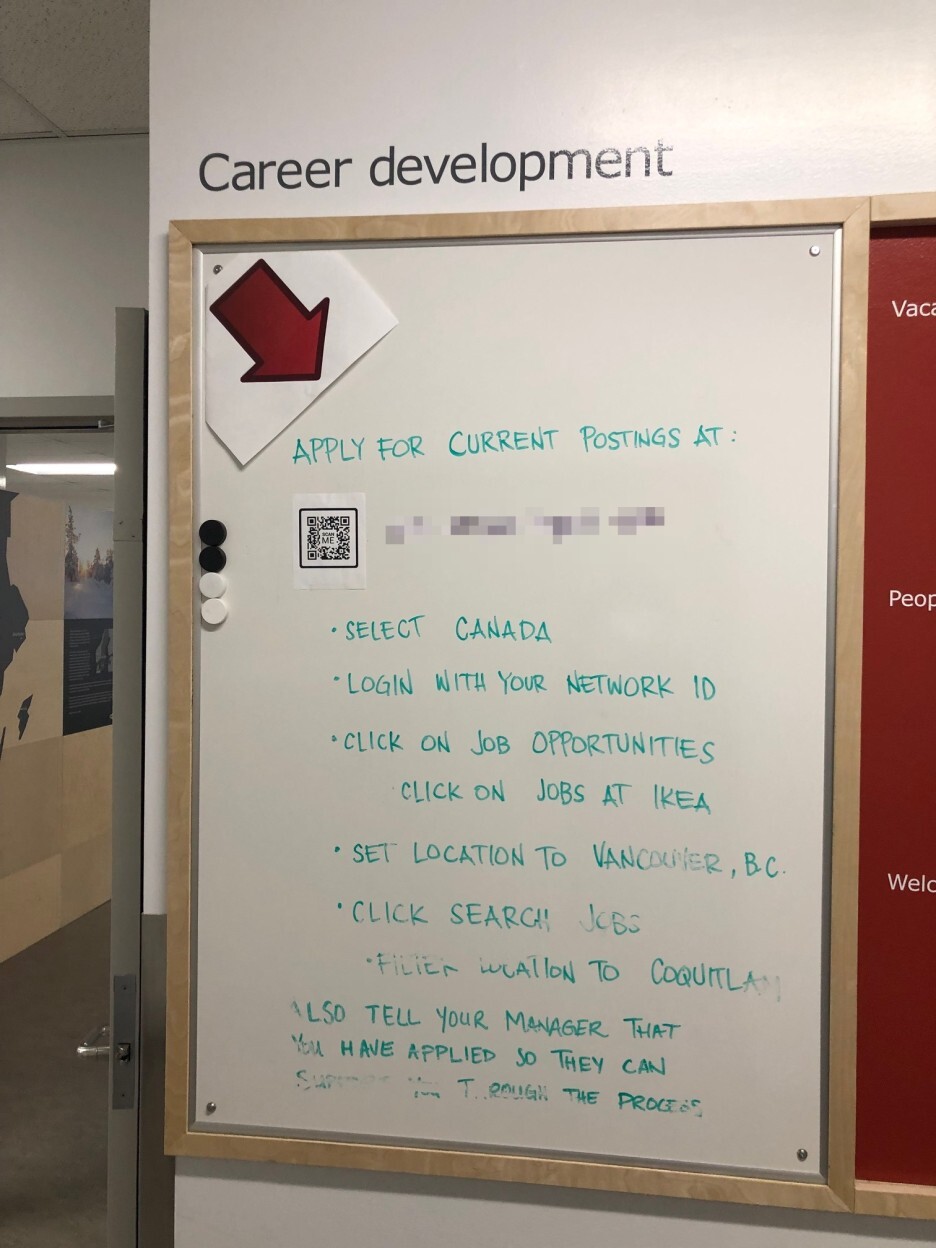 Career development
APPLY FOR CURRENT POSTINGS AT:
SCAN
ME
• SELECT CANADA
• LOGIN WITH YOUR NETWORK ID
• CLICK ON JOB OPPORTUNITIES
CLICK ON JOBS AT IKEA
• SET LOCATION TO VANCOUVER, B.C.
• CLICK SEARCH JOBS
• FILTER LOCATION TO COQUITLAM
ALSO TELL YOUR MANAGER THAT
YOU HAVE APPLIED SO THEY CAN
SUPPORT YOU THROUGH THE PROCESS
Vaca
Peop
Welc